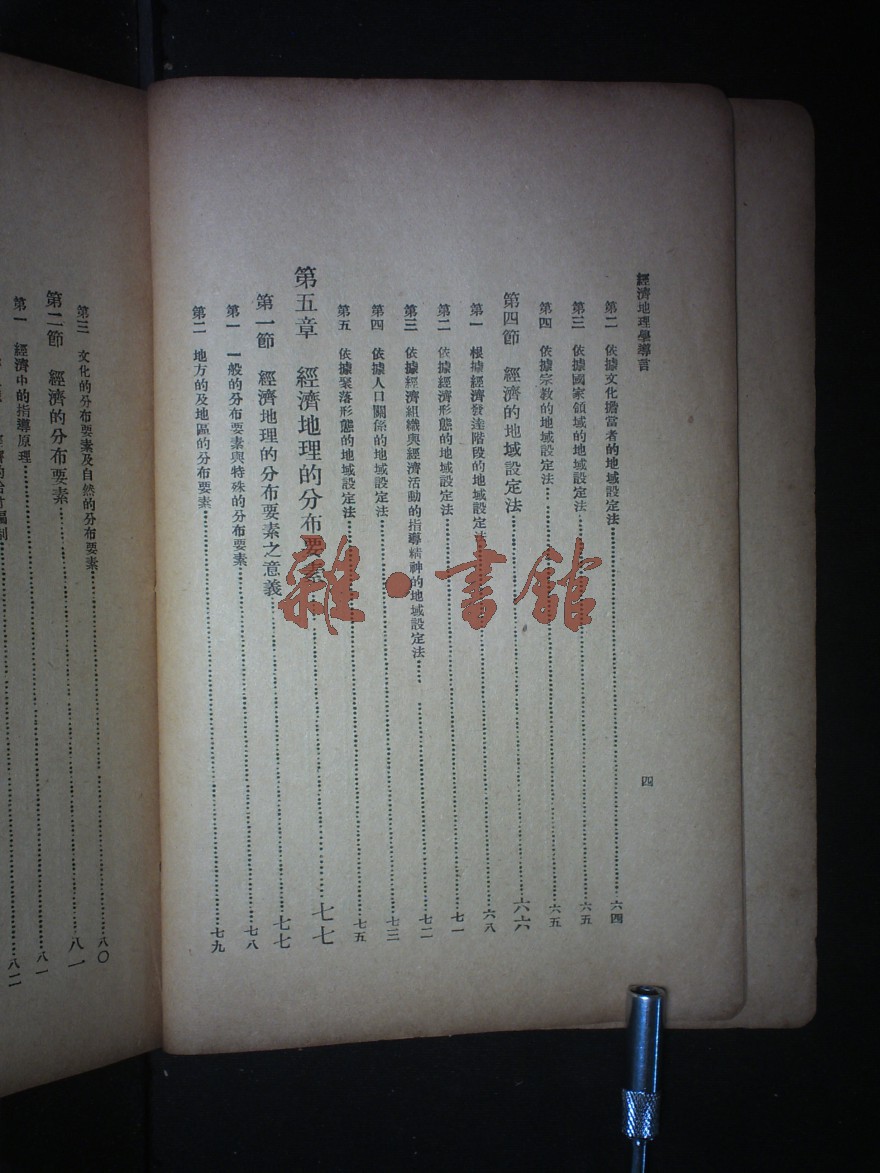 經濟地理學導言
四
第二 依據文化擔當者的地域設定法……六四
第三 依據國家領域的地域設定法……六五
第四 依據宗教的地域設定法……六五
第四節 經濟的地域設定法……六六
第一 根據經濟發達階段的地域設定法……六八
第二 依據經濟形態的地域設定法……七一
第三 依據經濟組織與經濟活動的指導精神的地域設定法……七二
第四 依據人口關係的地域設定法……七三
第五 依據聚落形態的地域設定法……七五
第五章 經濟地理的分布要素……七七
第一節 經濟地理的分布要素之意義……七七
第一 一般的分布要素與特殊的分布要素……七八
第二 地方的及地區的分布要素……七九
第三 文化的分布要素及自然的分布要素……八〇
第二節 經濟的分布要素……八一
第一 經濟中的指導原理……八一
……八二
雜·書館